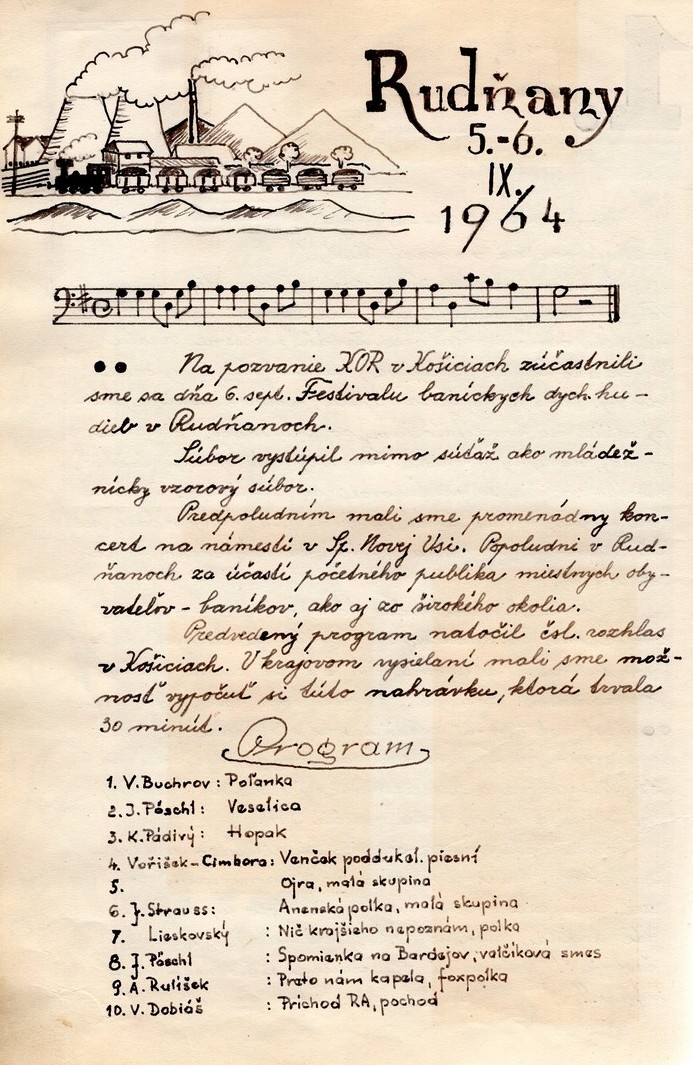 Rudňany
5.-6.
IX.
1964
Na pozvanie KOR v Košiciach zúčastnili
sme sa dňa 6. sept. Festivalu baníckych dych. hu-
dieb v Rudňanoch.
Súbor vystúpil mimo súťaž ako mládež-
nícky vzorový súbor.
Predpoludním mali sme promenádny kon-
cert na námestí v Sp. Novej Vsi. Popoludní v Rud-
ňanoch za účastí početného publika miestnych oby-
vateľov - baníkov, ako aj zo širokého okolia.
Predvedený program natočil čsl. rozhlas
v Košiciach. V krajovom vysielaní mali sme mož-
nosť vypočuť si túto nahrávku, ktorá trvala
30 minút.
Program
1. V. Buchrov : Poľanka
2. J. Pöschl : Veselica
3. K. Pádivý : Hopak
4. Voříšek - Cimbora : Venček poddukel. piesní
5. Ojra, malá skupina
6. J. Strauss : Anenská polka, malá skupina
7. Lieskovský : Nič krajšieho nepoznám, polka
8. J. Pöschl : Spomienka na Bardejov, valčíková smes
9. A. Rulíšek : Preto nám kapela, foxpolka
10. V. Dobiáš : Príchod RA, pochod